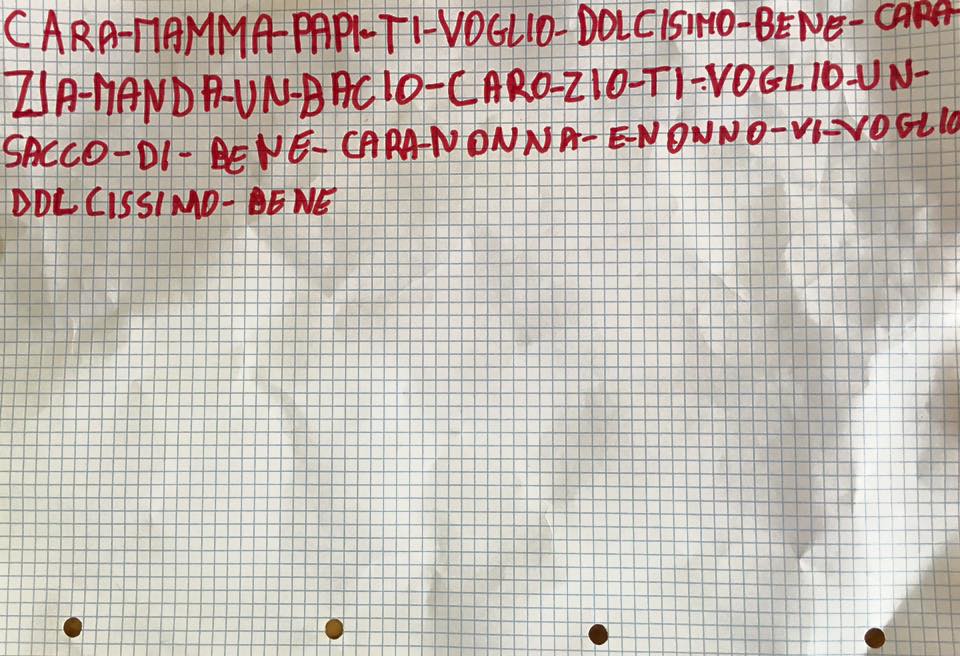 CARA-MAMMA-PAPI-TI-VOGLIO-DOLCISIMO-BENE-CARA-
ZIA-MANDA-UN-BACIO-CARO-ZIO-TI-VOGLIO-UN-
SACCO-DI-BENE-CARA-NONNA-E-NONNO-VI-VOGLIO
DOLCISSIMO-BENE